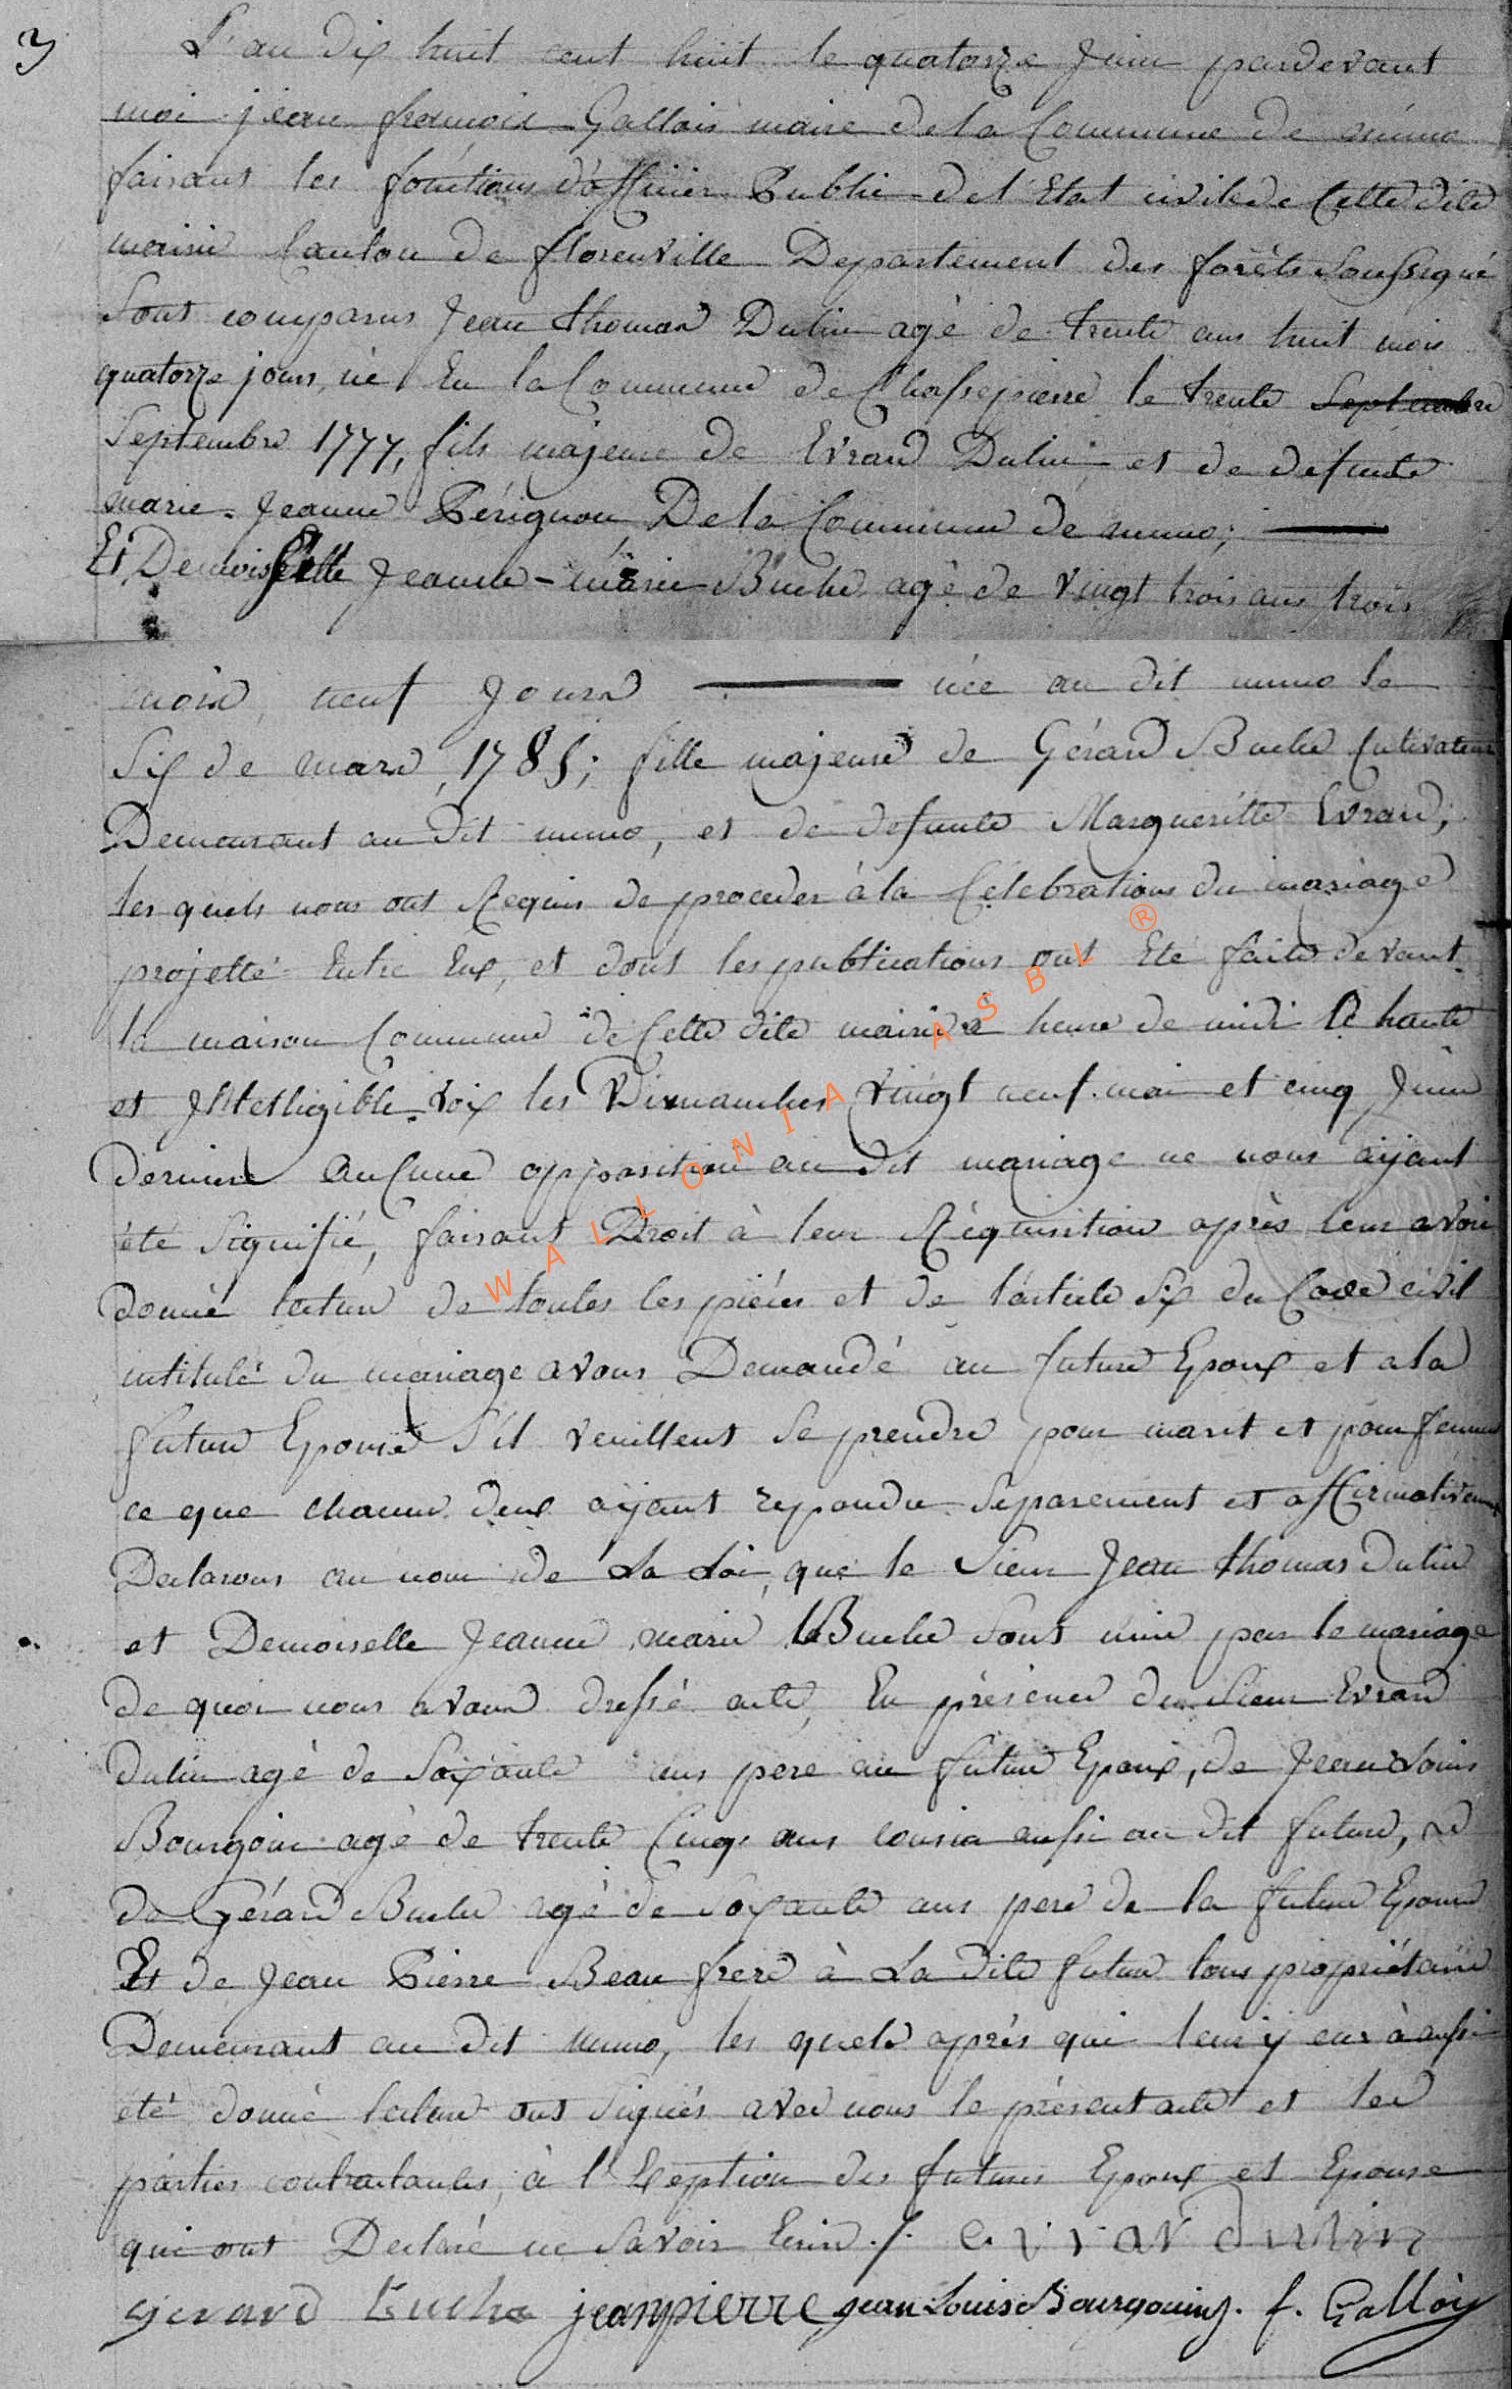 3
L'an dix huit cent huit le quatorze Juin pardevant
moi jean françois Gallois maire de la Commune de muno
faisant les fonctions d'officier Public de l'Etat civil de Cette dite
mairie Canton de florenville Departement des forêts Soussigné
Sont comparus Jean thomas Dulin agé de trente ans huit mois
quatorze jours, né En la Commune de Chassepierre le trente Septembre
Septembre 1777, fils majeure de Evrard Dulin et de defunte
marie-Jeanne Pérignon De la Commune de muno;
Et Demoiselle Jeanne-marie Buché agé de vingt trois ans trois
mois neuf Jours née au dit muno le
Six de mars 1785; fille majeure de Gérard Buché Cultivateur
Demeurant au dit muno, et de defunte Margueritte Evrard;
les quels nous ont Requis de proceder à la Célébrations du mariage
projetté Entre Eux, et dont les publications ont Eté faite devant
la maison Commune de Cette dite mairie à heure de midi à haute
et Intelligible voix les Dimanches vingt neuf mai et cinq Juin
dernier Aucune opposition au dit mariage ne nous aÿant
été signifié, faisant Droit à leur Réquisition après leur avoir
donné lecture de toutes les pièces et de l'article Six du Code civil
intitulé du mariage avons Demandé au future Epoux et a la
future Epouse s'il veuillent se prendre pour marit et pour femme
ce que chacun deux aÿant repondu Séparement et affirmativement
Declarons au nom de La Loi, que le Sieur Jean thomas Dulin
et Demoiselle Jeanne marie Buché sont unie par le mariage
de quoi nous avons dressé acte, En présence du Sieur Evrard
Dulin agé de Soixante ans pere au futur Epoux, de Jean Louis
Bourgoin agé de trente Cinq ans cousin aussi au dit future,
de Gérard Buché agé de Soixante ans pere de la future Epouse
Et de Jean Pierre Beau frere à La dite future tous propriétaire
Demeurant au dit muno, les quels après qui leur y eus à aussi
été donné lecture ont signés avec nous le présent acte et les
parties contractantes, à l'Exeption des futures Epoux et Epouse
qui ont Declaré ne savoir Ecrire ./. evrar dulin
gerard buche jeanpierre jean Louis Bourgouing. f. Gallois
WALLONIA ASBL ®